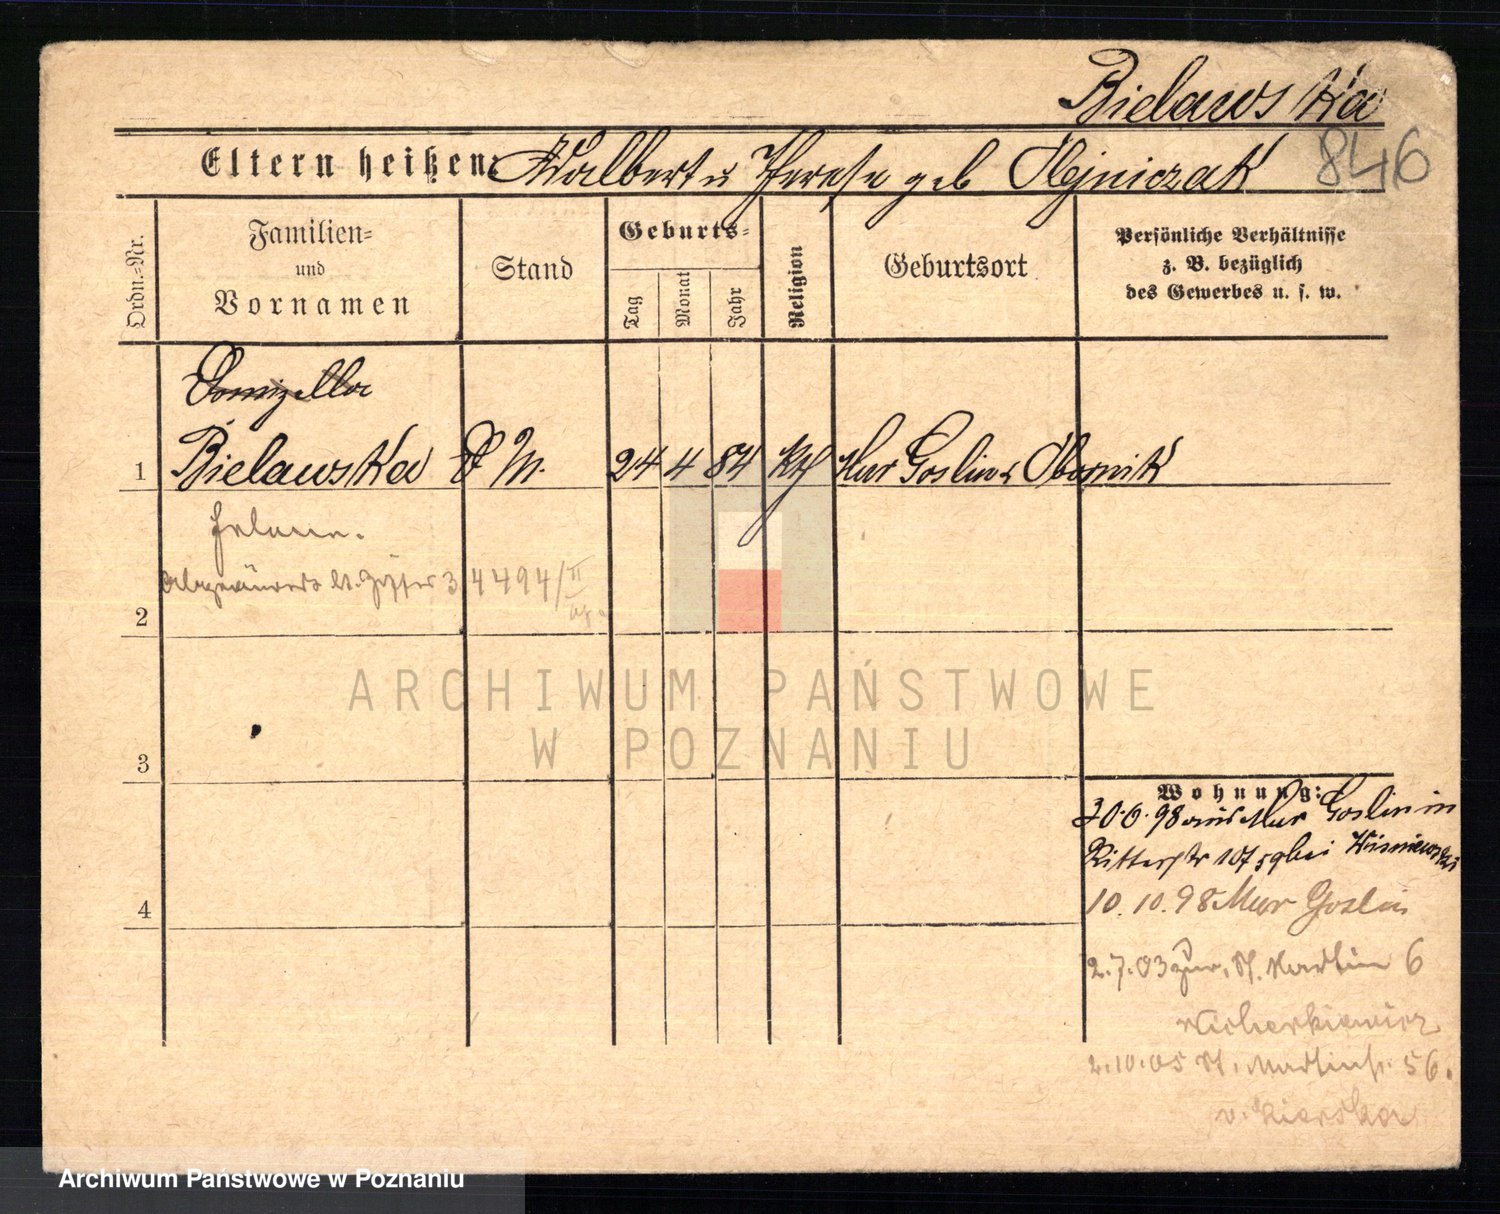 Bielawska
Eltern heißen: Adalbert u Therese geb Olejniczak
846
Ordn.-Nr.
Familien-
und
Vornamen
Stand
Geburts-
Tag
Monat
Jahr
Religion
Geburtsort
Persönliche Verhältnisse
z. B. bezüglich
des Gewerbes u. s. w.
1
Bielawska D M. 24 4 84 kth Mur Goslin Obornik
2
34494/II
ARCHIWUM PAŃSTWOWE
W POZNANIU
3
Wohnung:
30.6.98 aus Mur Goslin in
Ritterstr bei Wisniewski
4
10.10.98 Mur Goslin
2.7.03 zur. St. Martin 6
2.10.05 St. Martinstr. 56.
Archiwum Państwowe w Poznaniu